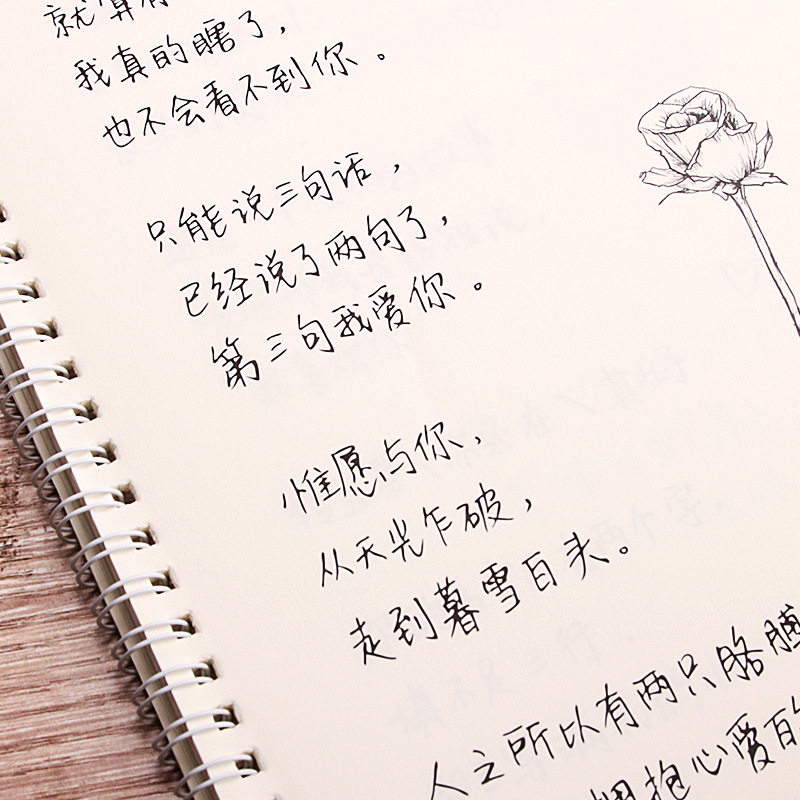 就算有
我真的瞎了，
也不会看不到你。
只能说三句话，
已经说了两句了，
第三句我爱你。
惟愿与你，
从天光乍破，
走到暮雪百头。
人之所以有两只胳膊
拥抱心爱的